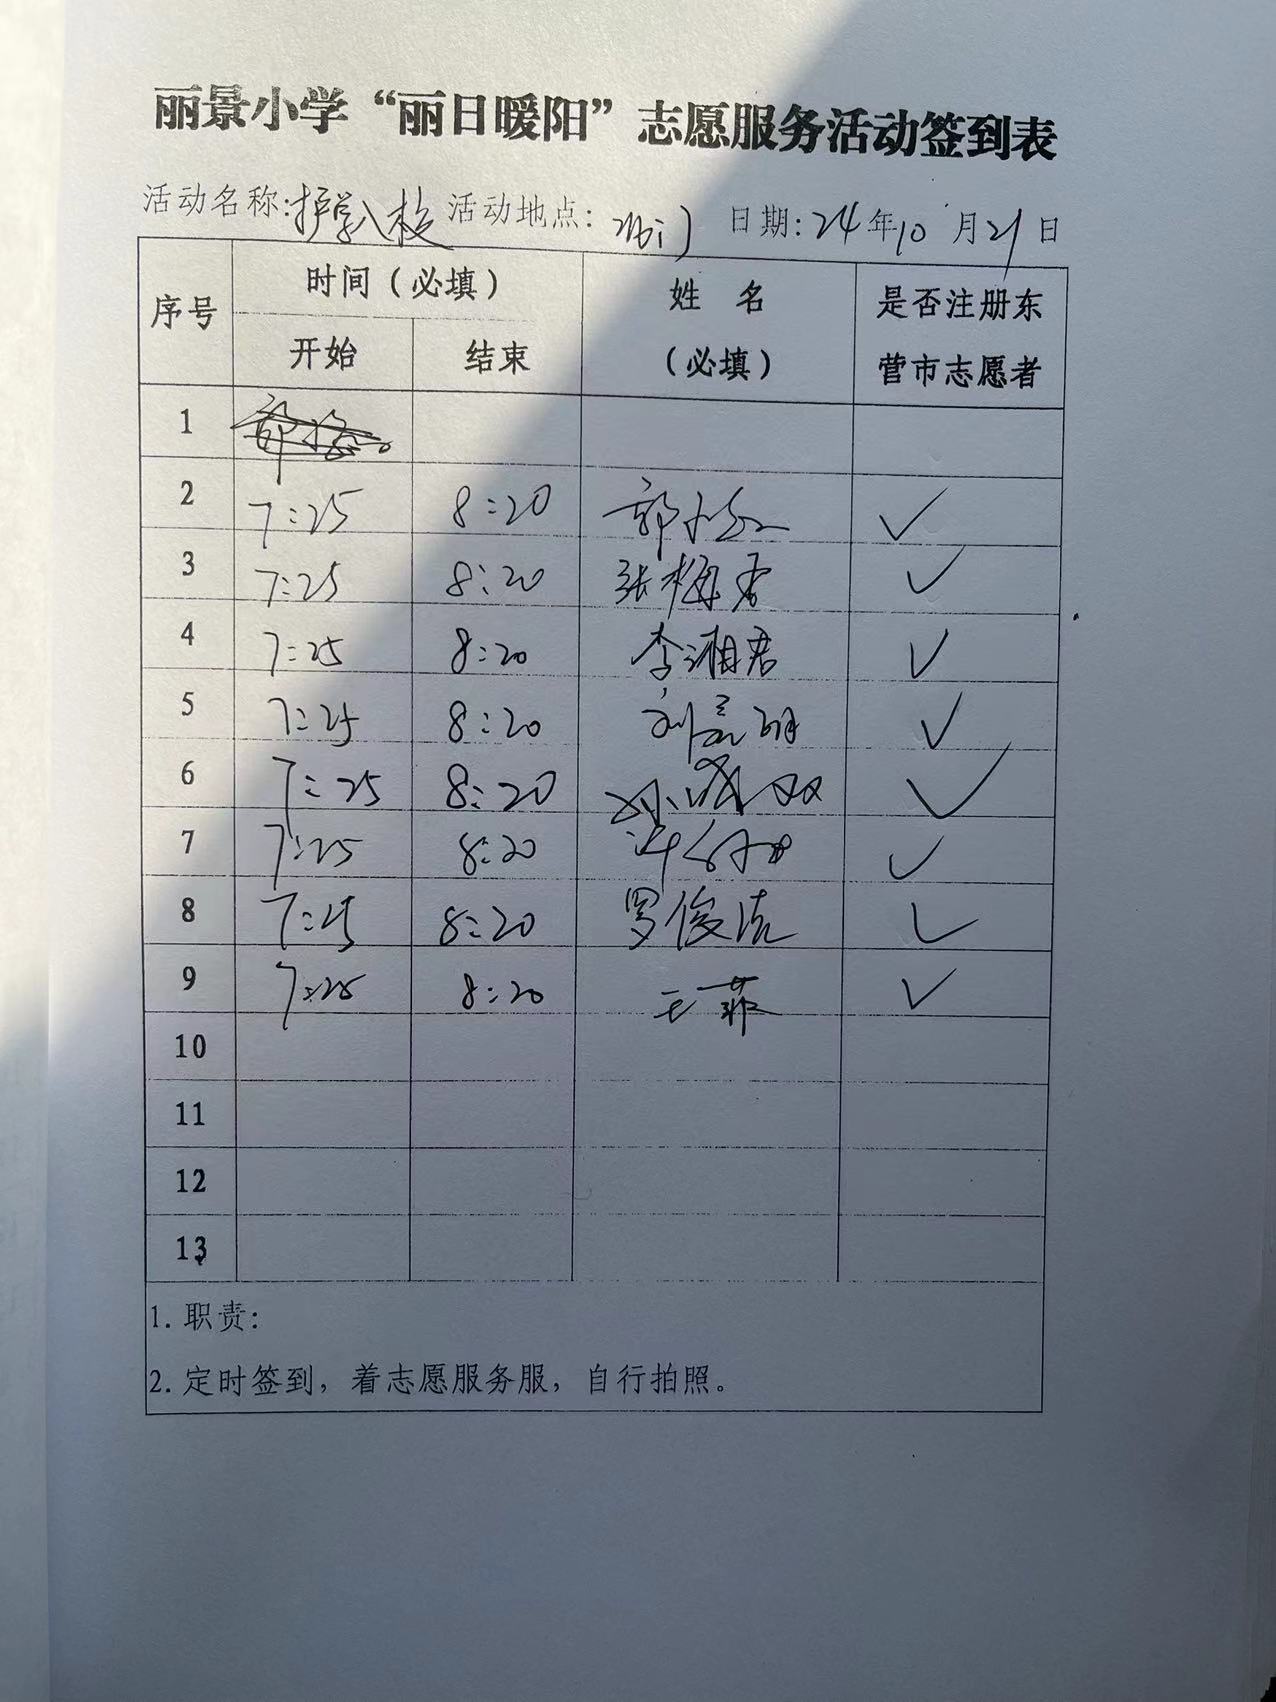 丽景小学“丽日暖阳”志愿服务活动签到表
活动名称:护学入校 活动地点: 日期:24年10月21日
序号 时间(必填) 姓 名 是否注册东
开始 结束 (必填) 营市志愿者
1
2 7:25 8:20 郭 ✓
3 7:25 8:20 张梅香 ✓
4 7:25 8:20 李湘君 ✓
5 7:25 8:20 刘 ✓
6 7:25 8:20 孙 ✓
7 7:25 8:20 ✓
8 7:25 8:20 罗俊洁 ✓
9 7:25 8:20 王菲 ✓
10
11
12
13
1. 职责:
2. 定时签到, 着志愿服务服, 自行拍照。